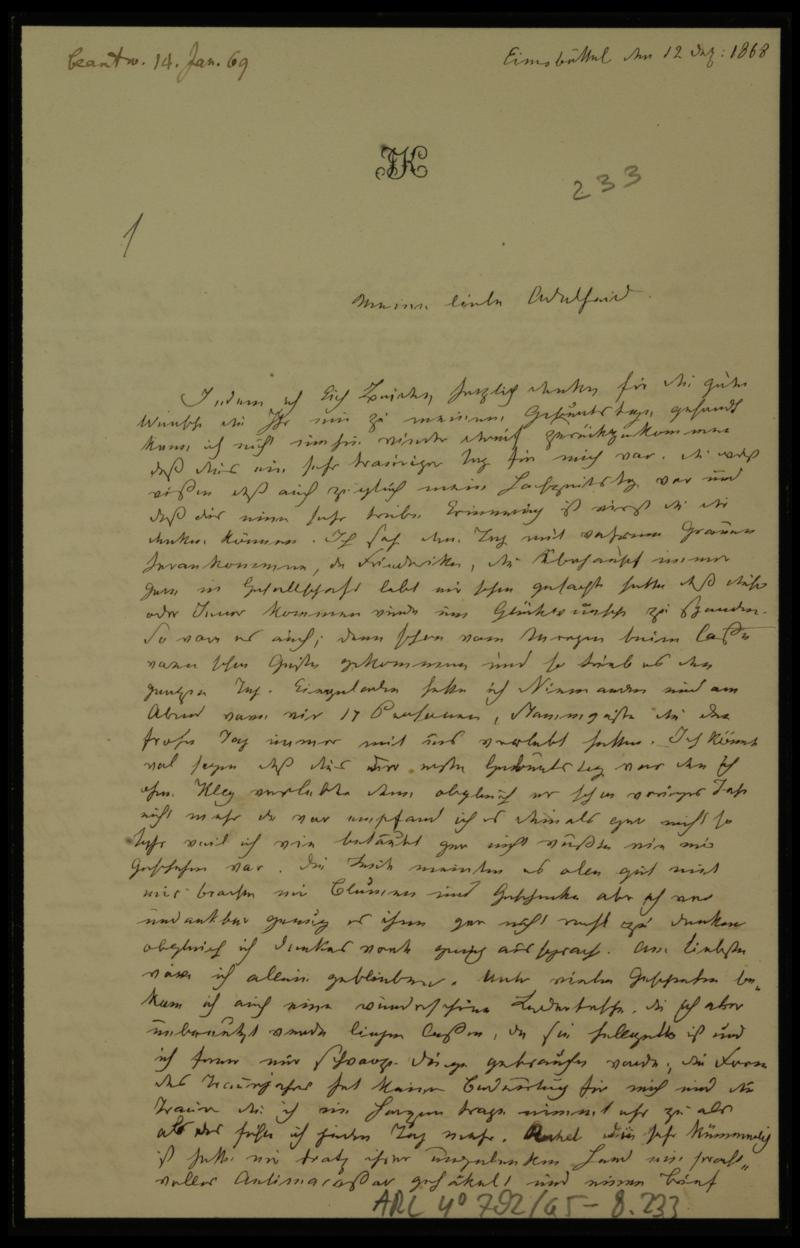 beantw. 14. Jan. 69
Eimsbüttel den 12 Dez: 1868
JK
233
1
Meine liebe Adelheid.
Indem ich Euch Beiden herzlich danke für die guten
Wünsche die Ihr mir zu meinem Geburtstage gesandt
kann ich nicht umhin wieder darauf zurückzukommen
daß dies ein sehr trauriger Tag für mich war. Du wirst
wißen daß auch zugleich mein Hochzeitstag war und
daß dies eine sehr trübe Erinnerung ist wirst du dir
denken können. Ich sah den Tag mit wahrem Grauen
herankommen, da Friederike, die überhaupt immer
gern in Gesellschaft lebt mir schon gesagt hatte daß dieser
oder Jener kommen würde um Glückwünsche zu
So war es auch; denn schon vom Morgen beim Caffee
waren schon Gäste gekommen und so blieb es den
ganzen Tag. Eingeladen hatte ich Niemanden und am
Abend waren wir 17 Personen, Stammgäste die den
frohen Tag immer mit uns verlebt hatten. Ich könnte
wol sagen daß dies der erste Geburtstag war den ich
ohne verlebte denn obgleich er schon voriges Jahr
nicht mehr da war empfand ich es damals gar nicht so
sehr weil ich wie betäubt gar nicht wußte wie mir
geschehen war. Die Leute meinten es alle gut mit
mir brachten mir Blumen und Geschenke aber ich war
undankbar genug es ihnen gar nicht recht zu danken
obgleich ich Dankesworte genug aussprach. Am liebsten
wäre ich allein geblieben. Unter vielen Geschenken be-
kam ich auch eine wunderschöne Ledertasche, die ich aber
unbenutzt werde liegen laßen, da sie hellgelb ist und
ich ferner nur schwarze Dinge gebrauchen werde; die Form
des Trauerjahres hat keine Bedeutung für mich und die
Trauer die ich im Herzen trage nimmt eher zu als
ab das fühle ich jeden Tag mehr. Rahel die sehr kümmerlich
ist hatte mir trotz ihrer ungelenken Hand ein pracht-
volles Antimacaßar gehäkelt und einen Brief
ARC 4° 792/G5-8.233